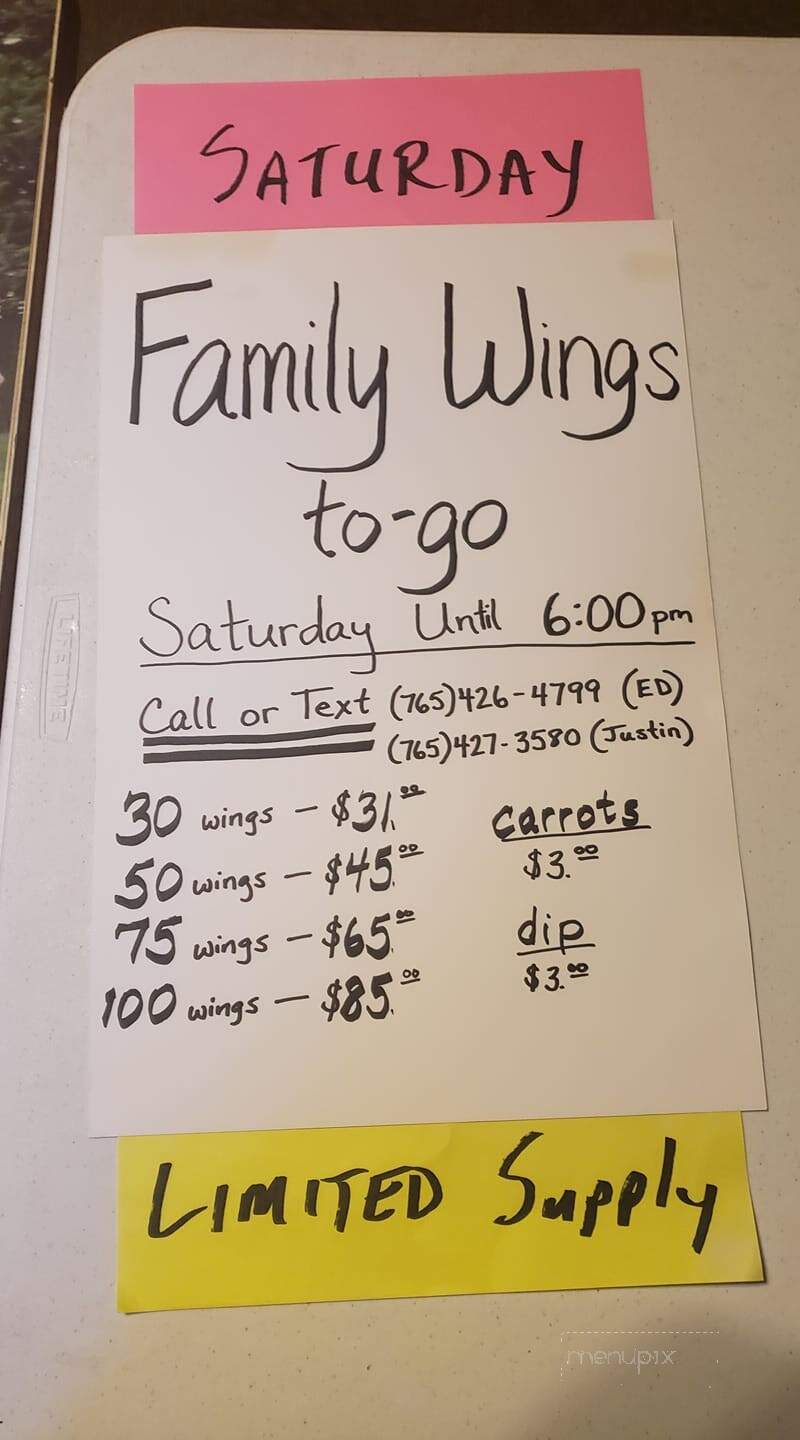 SATURDAY
Family Wings
to-go
Saturday Until 6:00pm
Call or Text (765)426-4799 (ED)
(765)427-3580 (Justin)
30 wings - $31.00
50 wings - $45.00
75 wings - $65.00
100 wings - $85.00
carrots
$3.00
dip
$3.00
LIMITED Supply
LIFETIME
menupix